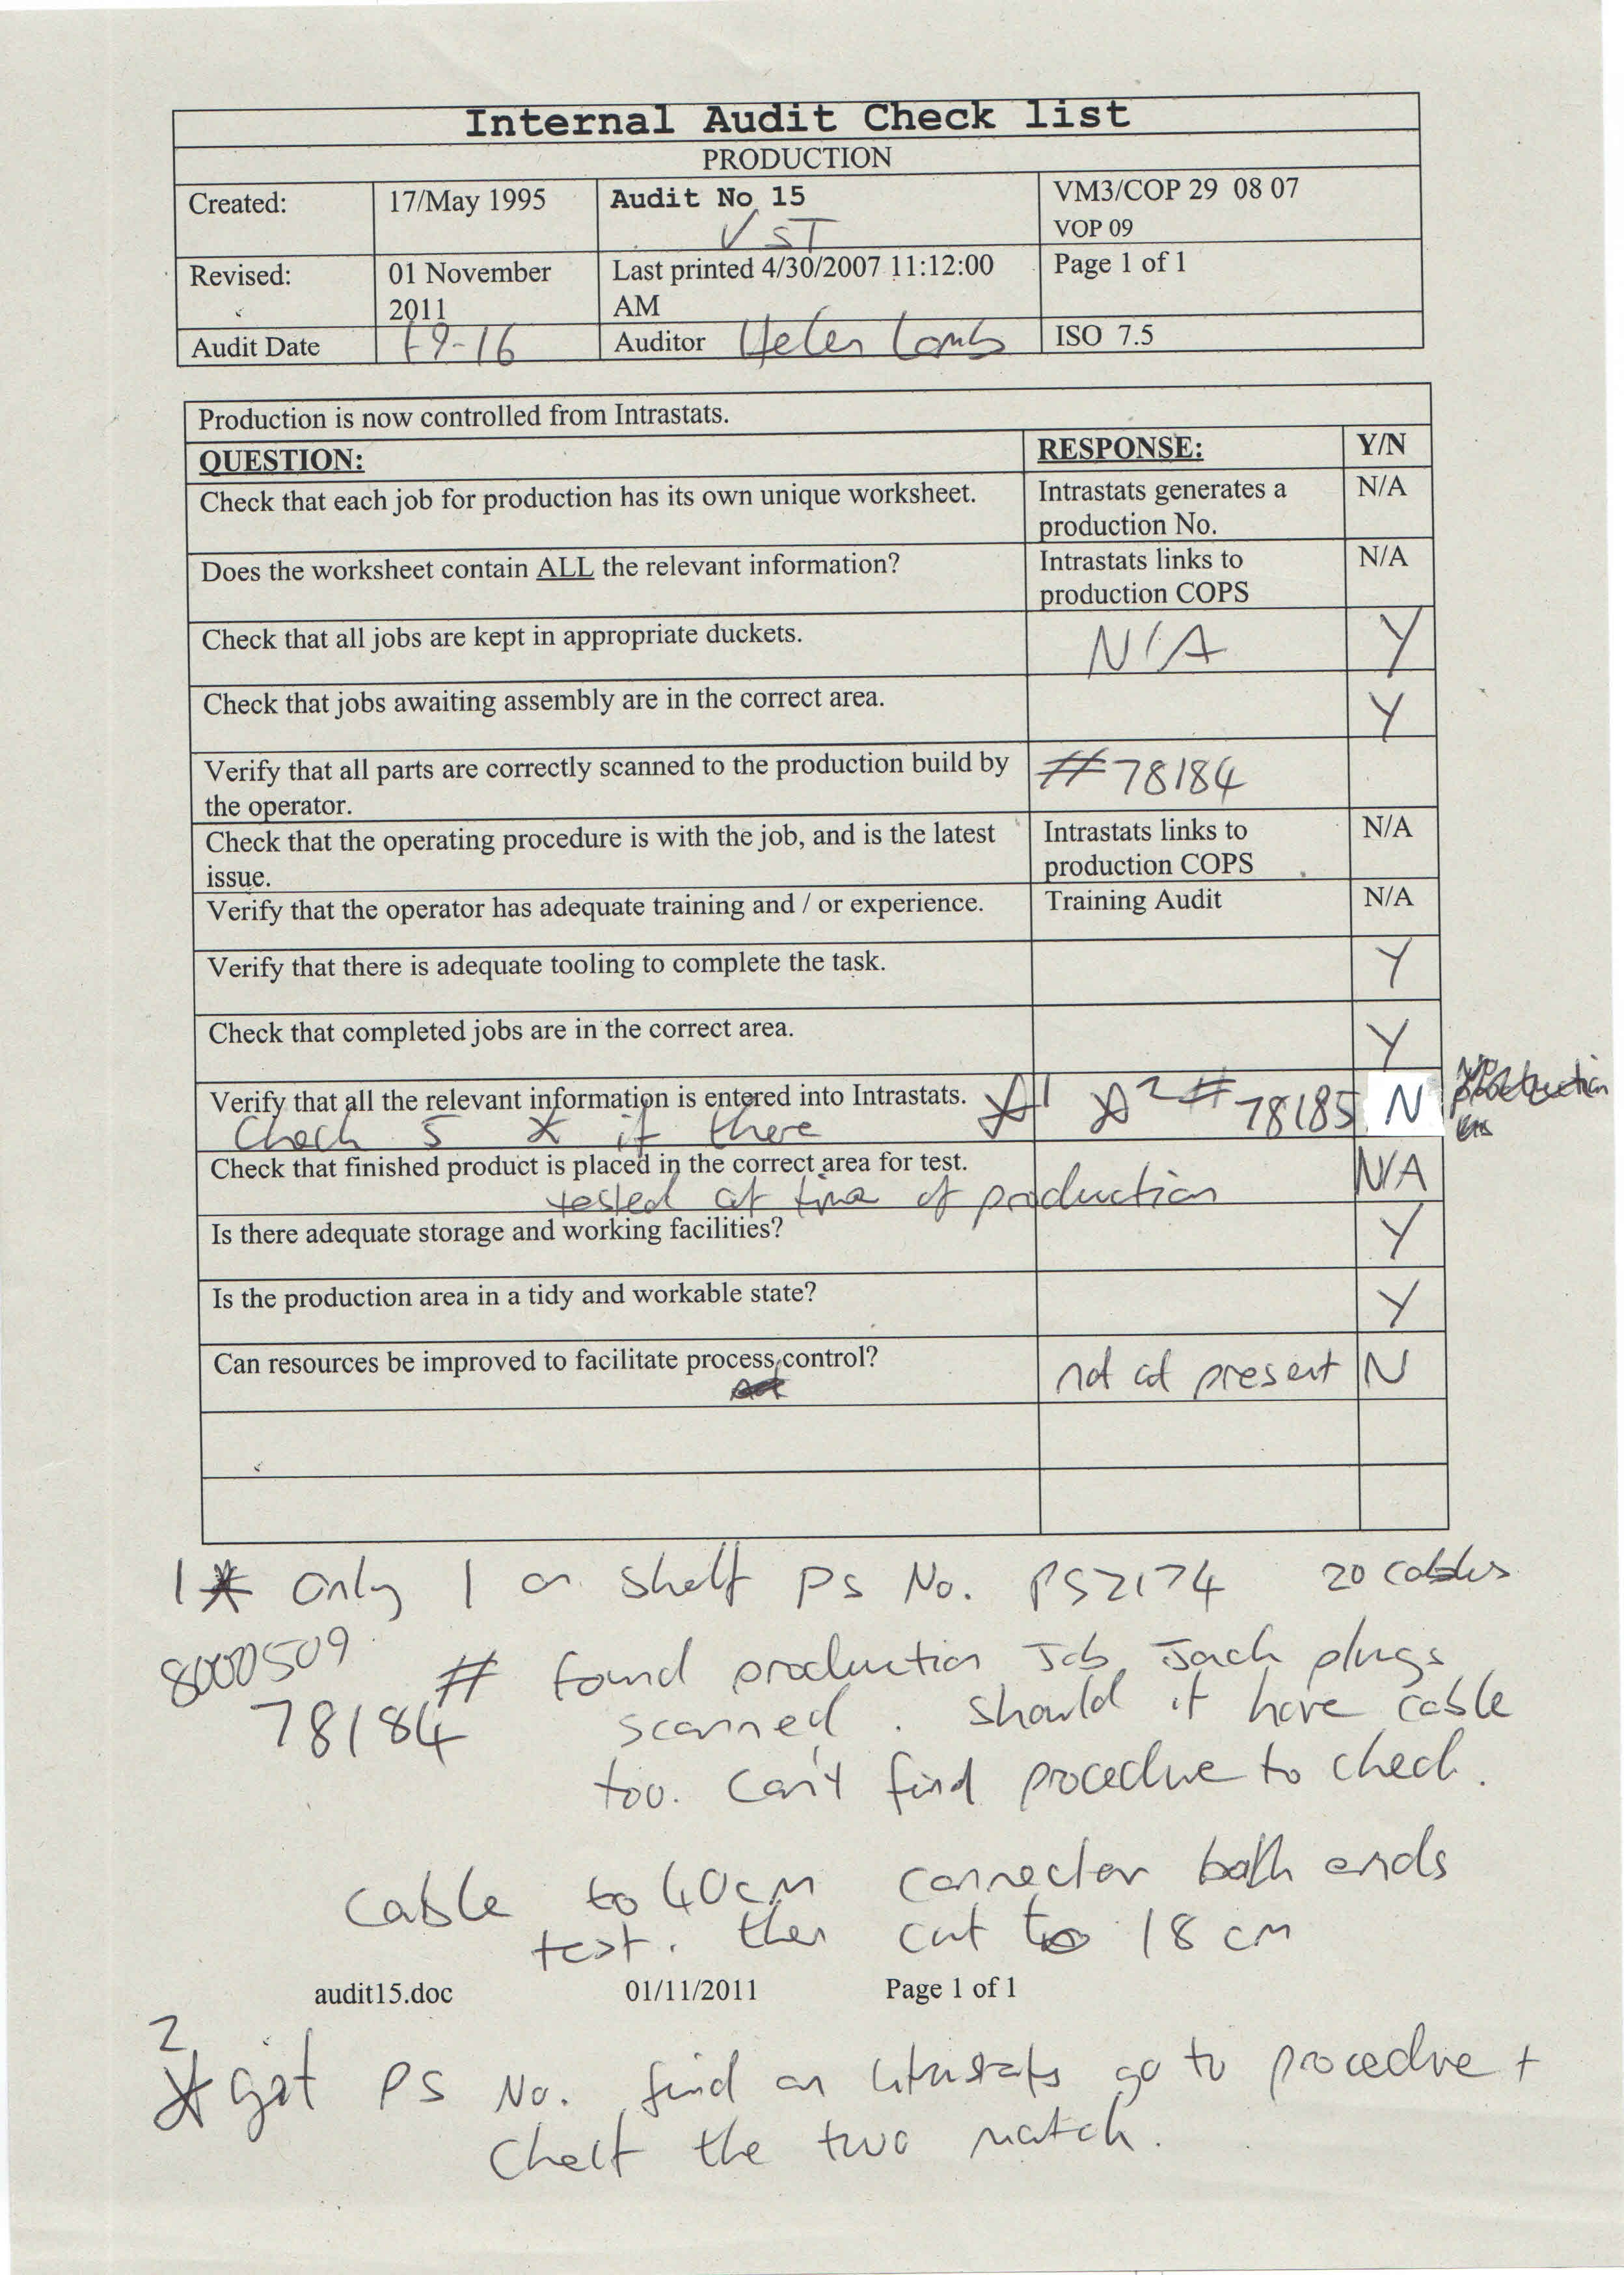 Internal Audit Check list
PRODUCTION
Created: 17/May 1995 Audit No 15 VM3/COP 29 08 07
VST VOP 09
Revised: 01 November Last printed 4/30/2007 11:12:00 Page 1 of 1
2011 AM
Audit Date 9-16 Auditor Helen ISO 7.5
Production is now controlled from Intrastats.
QUESTION: RESPONSE: Y/N
Check that each job for production has its own unique worksheet. Intrastats generates a N/A
production No.
Does the worksheet contain ALL the relevant information? Intrastats links to N/A
production COPS
Check that all jobs are kept in appropriate duckets. N/A Y
Check that jobs awaiting assembly are in the correct area. Y
Verify that all parts are correctly scanned to the production build by #78184
the operator.
Check that the operating procedure is with the job, and is the latest Intrastats links to N/A
issue. production COPS
Verify that the operator has adequate training and / or experience. Training Audit N/A
Verify that there is adequate tooling to complete the task. Y
Check that completed jobs are in the correct area. Y
Verify that all the relevant information is entered into Intrastats. *1 *2 # 78185 N
Check 5 * if there
Check that finished product is placed in the correct area for test. N/A
tested at time of production
Is there adequate storage and working facilities? Y
Is the production area in a tidy and workable state? Y
Can resources be improved to facilitate process control? not at present N
1* only 1 on shelf PS No. PS2174 20 cables
8000509 # found production Job Jack plugs
78184 scanned. should it have cable
too. Can't find procedure to check.
cable to 40cm connector both ends
test. then cut to 18 cm
audit15.doc 01/11/2011 Page 1 of 1
2
* got PS No. find on intrastats go to procedure +
Check the two match.